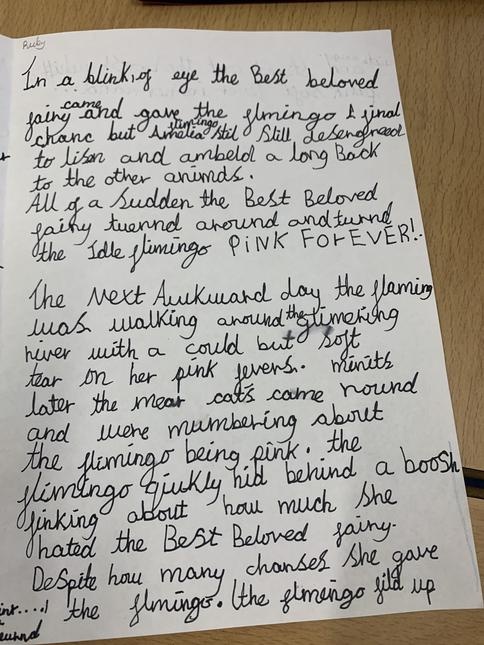 Ruby
In a blink, of eye the Best beloved
fairy came and gave the flmingo A final
chanc but Amelia flimingo stil Still desengreed
to lison and ambeld a long Back
to the other animds.
All of a Sudden the Best Beloved
fairy tuennd around and turnd
the Idle flimingo PiNK FoREVER!.
The Next Awkward day the flaming
was walking around the glimering
hiver with a could but soft
tear on her pink fevers. minits
later the mear cats came round
and were mumbering about
the flimingo being pink. the
flimingo qiukly hid behind a boosh
finking about how much She
hated the BeSt Beloved fairy.
DeSpite how many chanses She gave
the flmingo. (the flmingo fild up